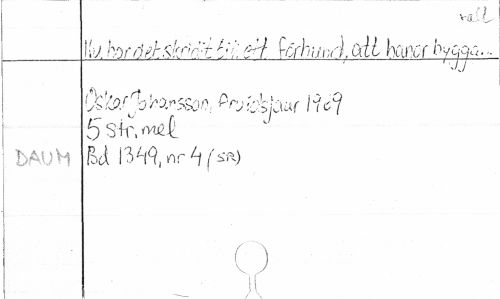 rall
Nu har det skridit till ett förbund, att banor bygga...
Oskar Johansson, Arvidsjaur 1969
5 str. mel
DAUM Bd 1349, nr 4 (SR)